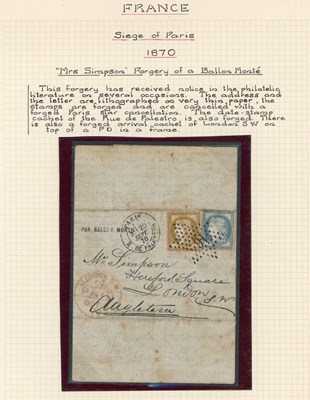 FRANCE
Siege of Paris
1870
"Mrs Simpson" Forgery of a Ballon Monté
This forgery has received notice in the philatelic
literature on several occasions. The address and
the letter are lithographed on very thin paper, the
stamps are forged and are cancelled with a
forged Paris star cancellation. The date-stamp
cachet of the Rue de Palestro, is also forged. There
is also a forged arrival cachet of London S.W on
top of a P.D in a frame.
PARIS
PAR BALLON MONTÉ
Mrs. Simpson
Hereford Square
London
S.W
Angleterre